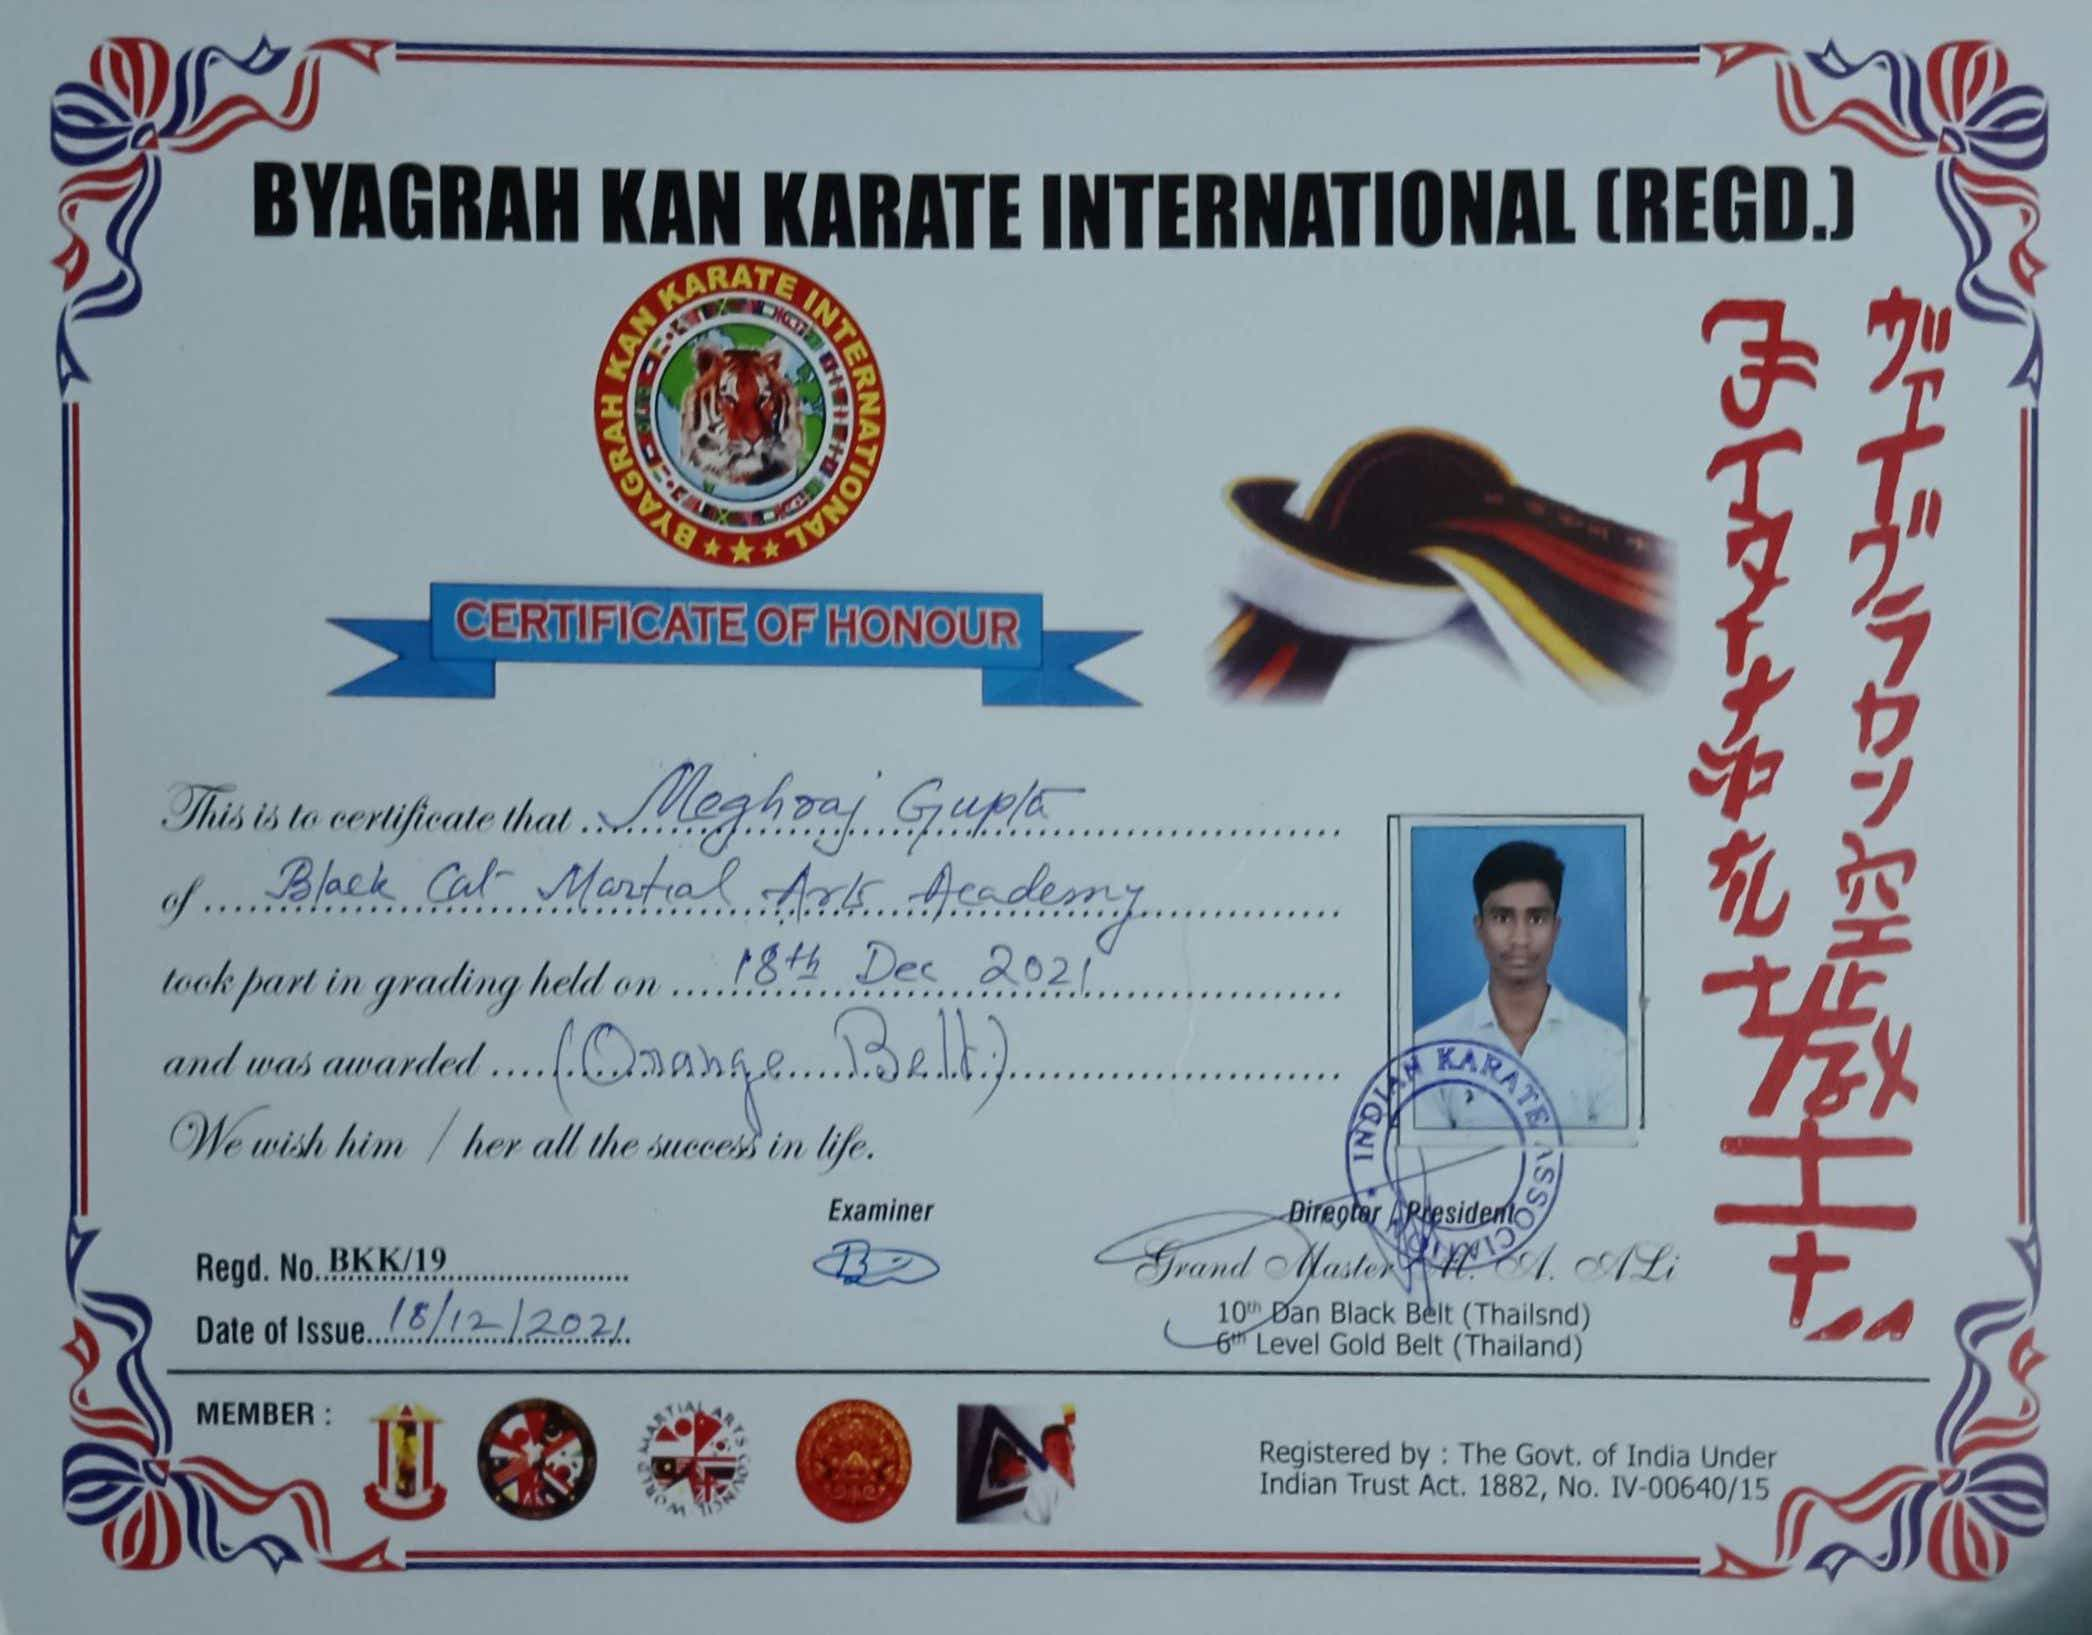 BYAGRAH KAN KARATE INTERNATIONAL (REGD.)
BYAGRAH KAN KARATE INTERNATIONAL
CERTIFICATE OF HONOUR
This is to certificate that Meghraj Gupta
of Black Cat Martial Arts Academy
took part in grading held on 18th Dec 2021
and was awarded (Orange Belt)
We wish him / her all the success in life.
INDIAN KARATE ASSOCIATION
Examiner
Director / President
Regd. No. BKK/19
Grand Master H. A. ALi
Date of Issue 18/12/2021
10th Dan Black Belt (Thailsnd)
6th Level Gold Belt (Thailand)
MEMBER :
WORLD MARTIAL ARTS COUNCIL
Registered by : The Govt. of India Under
Indian Trust Act. 1882, No. IV-00640/15